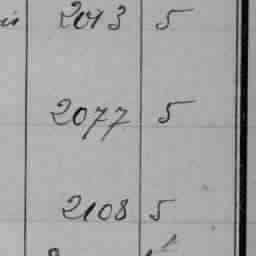 2043 5
2077 5
2108 5